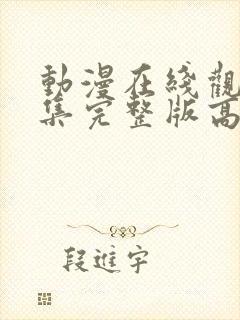 動漫在綫觀
集完整版高
段進宇